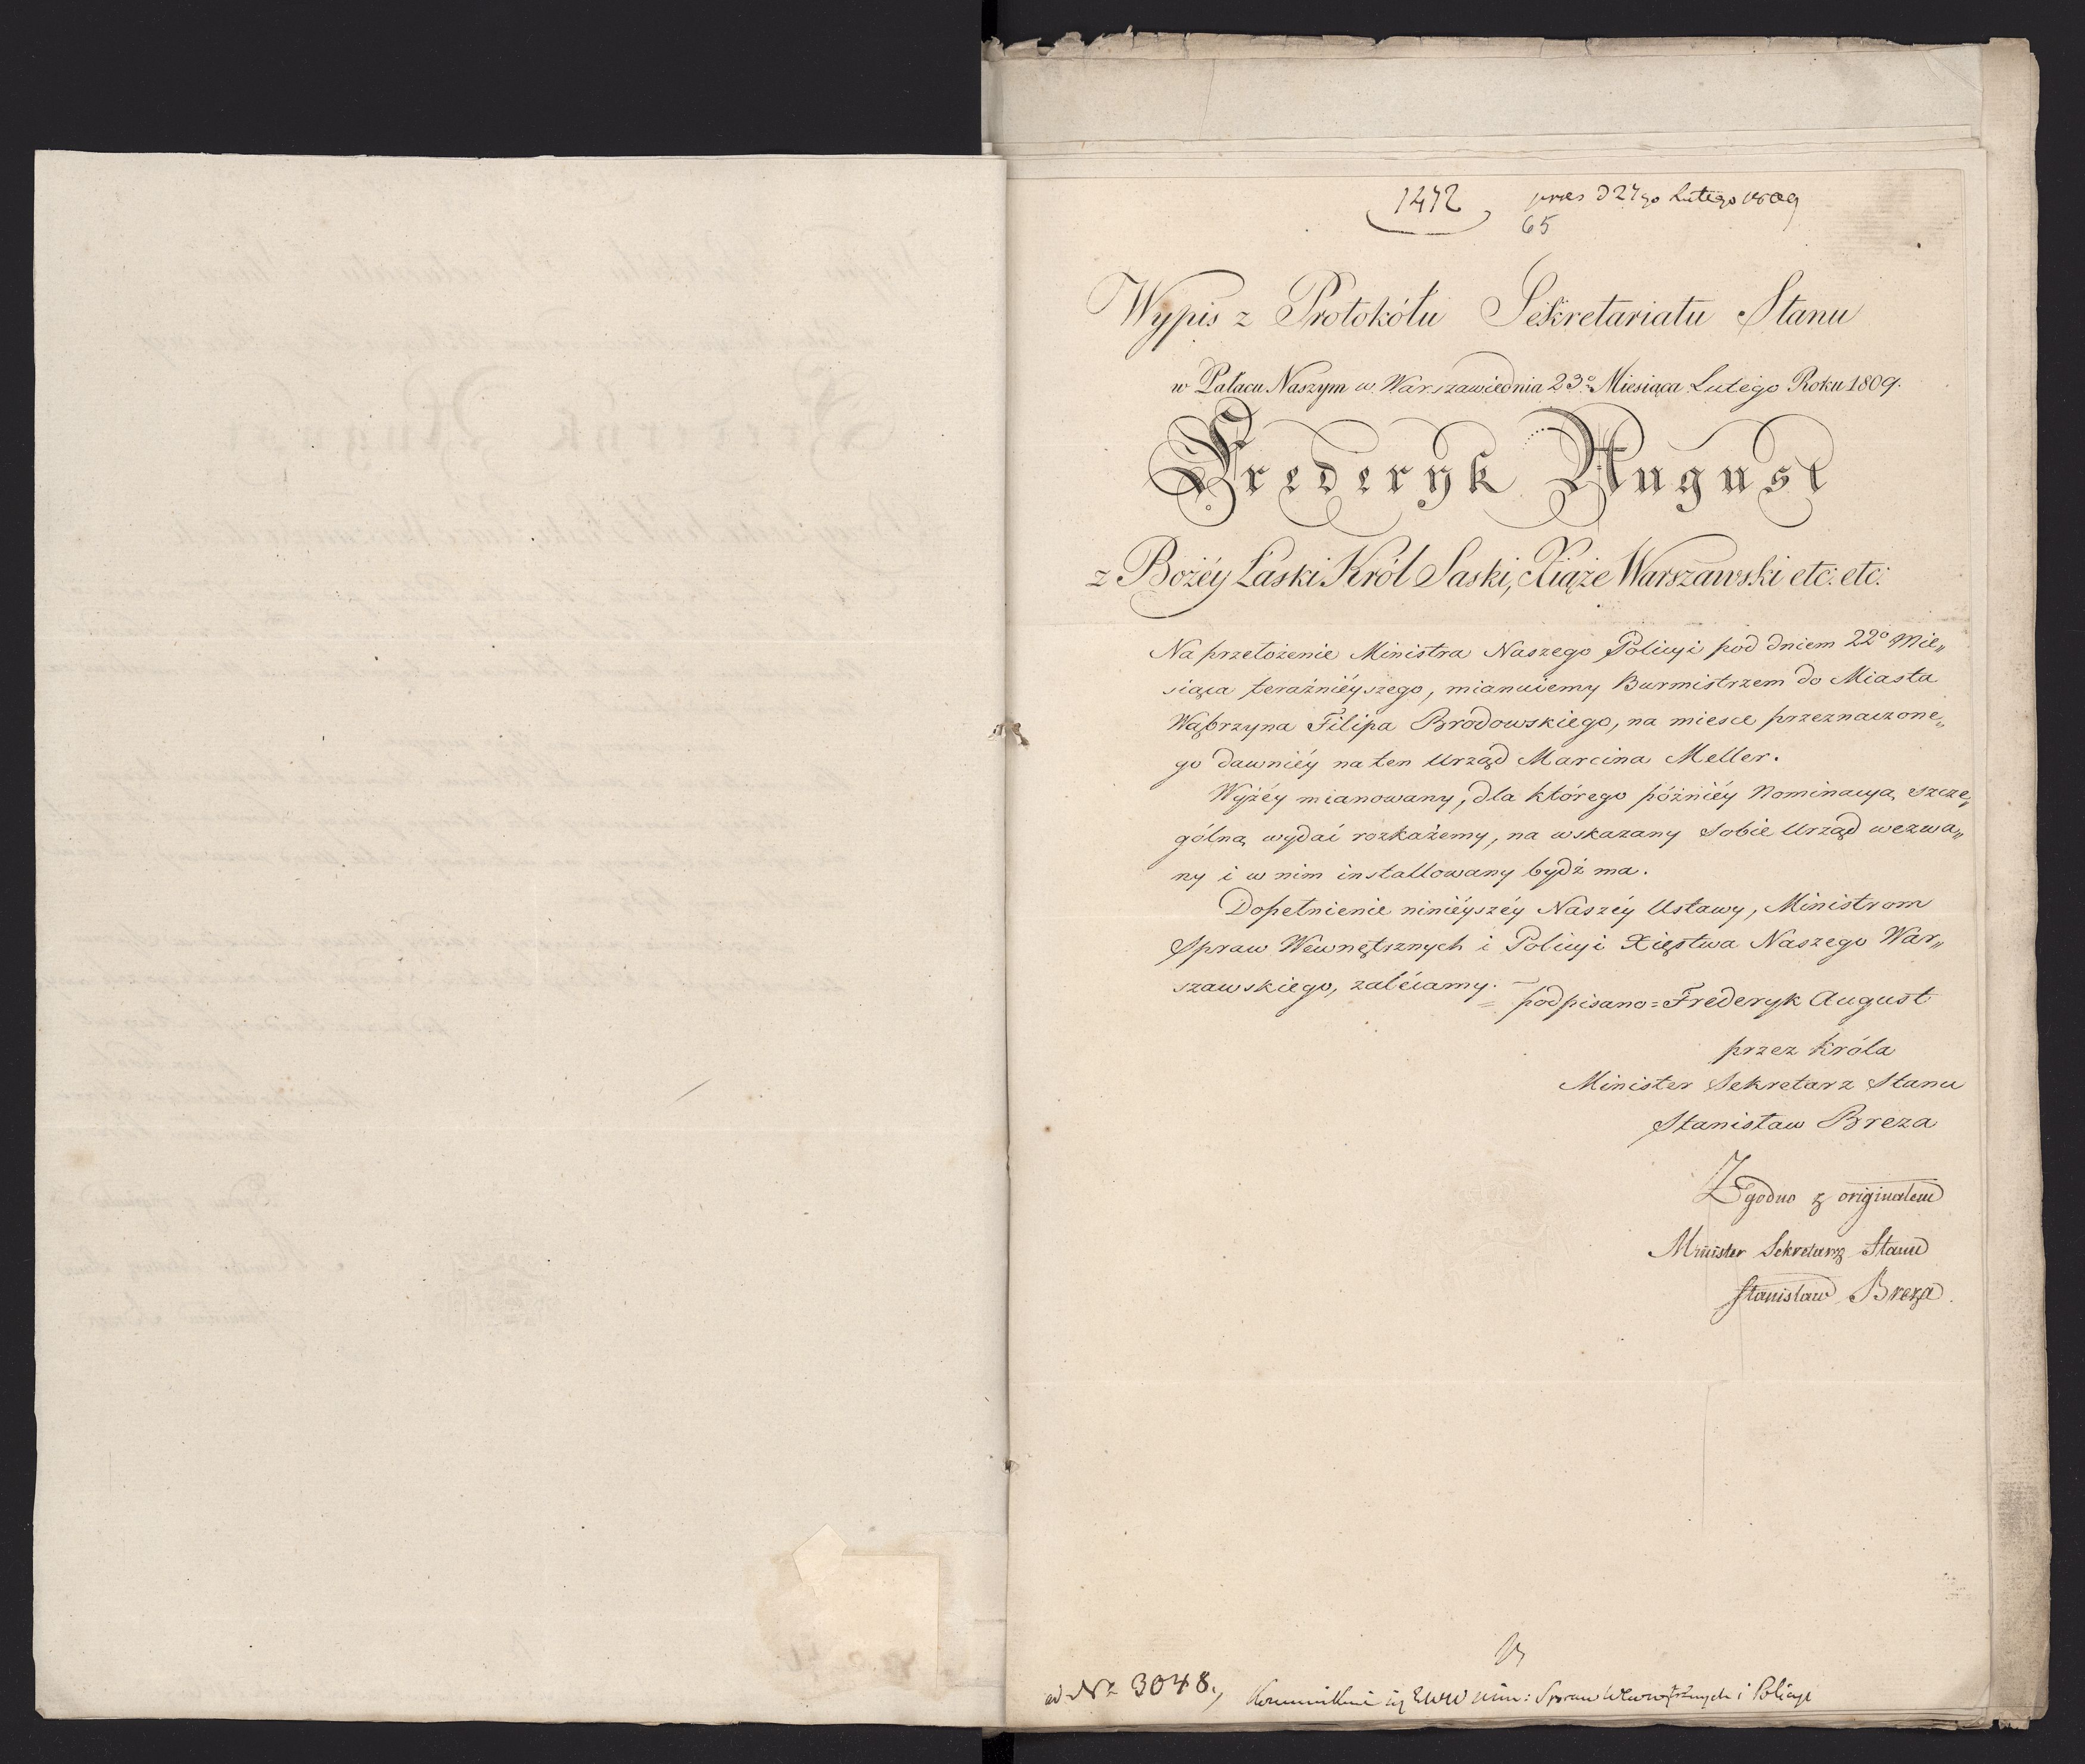 1472
pres d 27go Lutego 1809
65
Wypis z Protokółu Sekretariatu Stanu
w Pałacu Naszym w Warszawie dnia 23° Miesiąca Lutego Roku 1809.
Frederyk August
z Bożéy Łaski Król Saski, Xiąże Warszawski etc: etc:
Na przełożenie Ministra Naszego Policyi pod dniem 22° Mie„
siąca teraźnieyszego, mianuiemy Burmistrzem do Miasta
Wąbrzyna Filipa Brodowskiego, na miesce przeznaczone„
go dawniéy na ten Urząd Marcina Meller.
Wyżéy mianowany, dla którego późniéy Nominacyą szcze„
gólną wydać rozkażemy, na wskazany sobie Urząd wezwa„
ny i w nim installowany bydź ma.
Dopełnienie ninieyszéy Naszéy Ustawy, Ministrom
Spraw Wewnętrznych i Policyi Xięstwa Naszego War„
szawskiego, zalécamy.
podpisano = Frederyk August
przez Króla
Minister Sekretarz Stanu
Stanisław Breza
Zgodno z originałem
Minister Sekretarz Stanu
Stanisław Breza
ad Nr 3048.
min: Spraw Wewnętrznych i Policyi